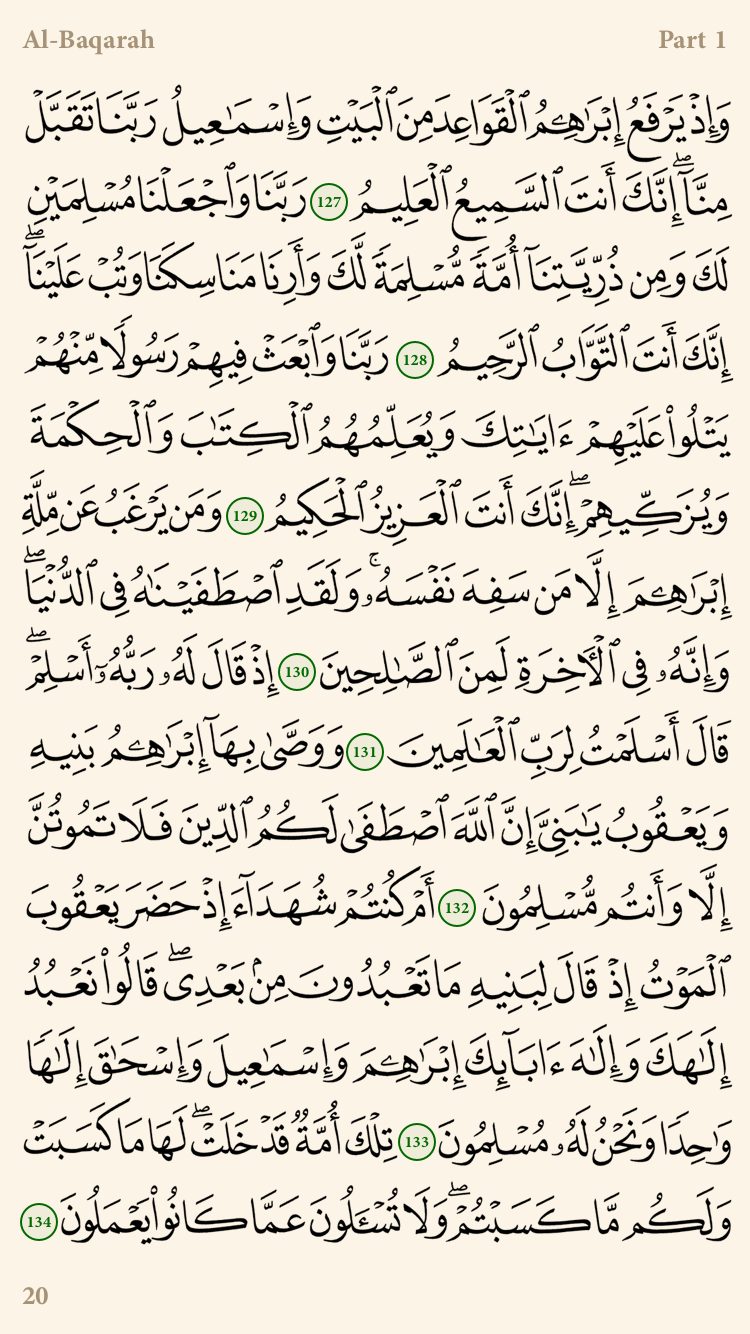 Al-Baqarah Part 1
وَإِذْ يَرْفَعُ إِبْرَٰهِـۧمُ ٱلْقَوَاعِدَ مِنَ ٱلْبَيْتِ وَإِسْمَـٰعِيلُ رَبَّنَا تَقَبَّلْ
مِنَّآ ۖ إِنَّكَ أَنتَ ٱلسَّمِيعُ ٱلْعَلِيمُ 127 رَبَّنَا وَٱجْعَلْنَا مُسْلِمَيْنِ
لَكَ وَمِن ذُرِّيَّتِنَآ أُمَّةً مُّسْلِمَةً لَّكَ وَأَرِنَا مَنَاسِكَنَا وَتُبْ عَلَيْنَآ ۖ
إِنَّكَ أَنتَ ٱلتَّوَّابُ ٱلرَّحِيمُ 128 رَبَّنَا وَٱبْعَثْ فِيهِمْ رَسُولًا مِّنْهُمْ
يَتْلُوا۟ عَلَيْهِمْ ءَايَـٰتِكَ وَيُعَلِّمُهُمُ ٱلْكِتَـٰبَ وَٱلْحِكْمَةَ
وَيُزَكِّيهِمْ ۖ إِنَّكَ أَنتَ ٱلْعَزِيزُ ٱلْحَكِيمُ 129 وَمَن يَرْغَبُ عَن مِّلَّةِ
إِبْرَٰهِـۧمَ إِلَّا مَن سَفِهَ نَفْسَهُۥ ۚ وَلَقَدِ ٱصْطَفَيْنَـٰهُ فِى ٱلدُّنْيَا ۖ
وَإِنَّهُۥ فِى ٱلْـَٔاخِرَةِ لَمِنَ ٱلصَّـٰلِحِينَ 130 إِذْ قَالَ لَهُۥ رَبُّهُۥٓ أَسْلِمْ ۖ
قَالَ أَسْلَمْتُ لِرَبِّ ٱلْعَـٰلَمِينَ 131 وَوَصَّىٰ بِهَآ إِبْرَٰهِـۧمُ بَنِيهِ
وَيَعْقُوبُ يَـٰبَنِىَّ إِنَّ ٱللَّهَ ٱصْطَفَىٰ لَكُمُ ٱلدِّينَ فَلَا تَمُوتُنَّ
إِلَّا وَأَنتُم مُّسْلِمُونَ 132 أَمْ كُنتُمْ شُهَدَآءَ إِذْ حَضَرَ يَعْقُوبَ
ٱلْمَوْتُ إِذْ قَالَ لِبَنِيهِ مَا تَعْبُدُونَ مِنۢ بَعْدِى ۖ قَالُوا۟ نَعْبُدُ
إِلَـٰهَكَ وَإِلَـٰهَ ءَابَآئِكَ إِبْرَٰهِـۧمَ وَإِسْمَـٰعِيلَ وَإِسْحَـٰقَ إِلَـٰهًا
وَٰحِدًا وَنَحْنُ لَهُۥ مُسْلِمُونَ 133 تِلْكَ أُمَّةٌ قَدْ خَلَتْ ۖ لَهَا مَا كَسَبَتْ
وَلَكُم مَّا كَسَبْتُمْ ۖ وَلَا تُسْـَٔلُونَ عَمَّا كَانُوا۟ يَعْمَلُونَ 134
20